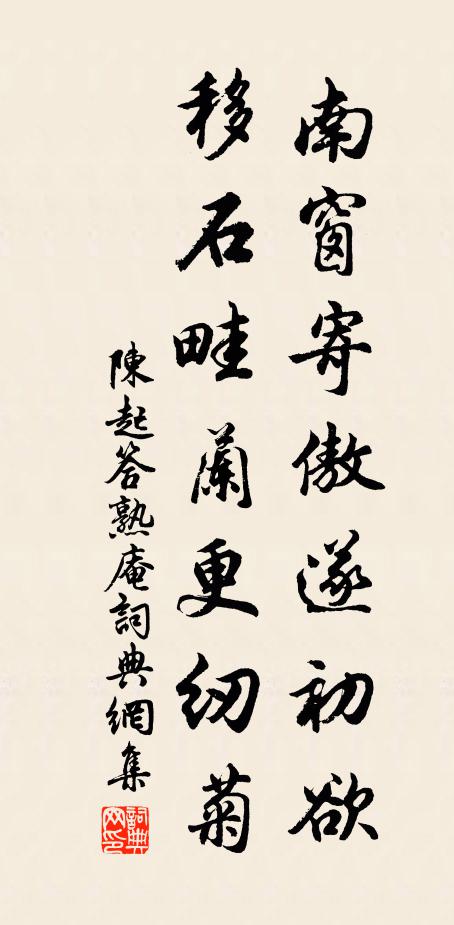 南窗寄傲遂初欲
移石畦蘭更紉菊
陳起答熟庵詞典網集
詞典網印